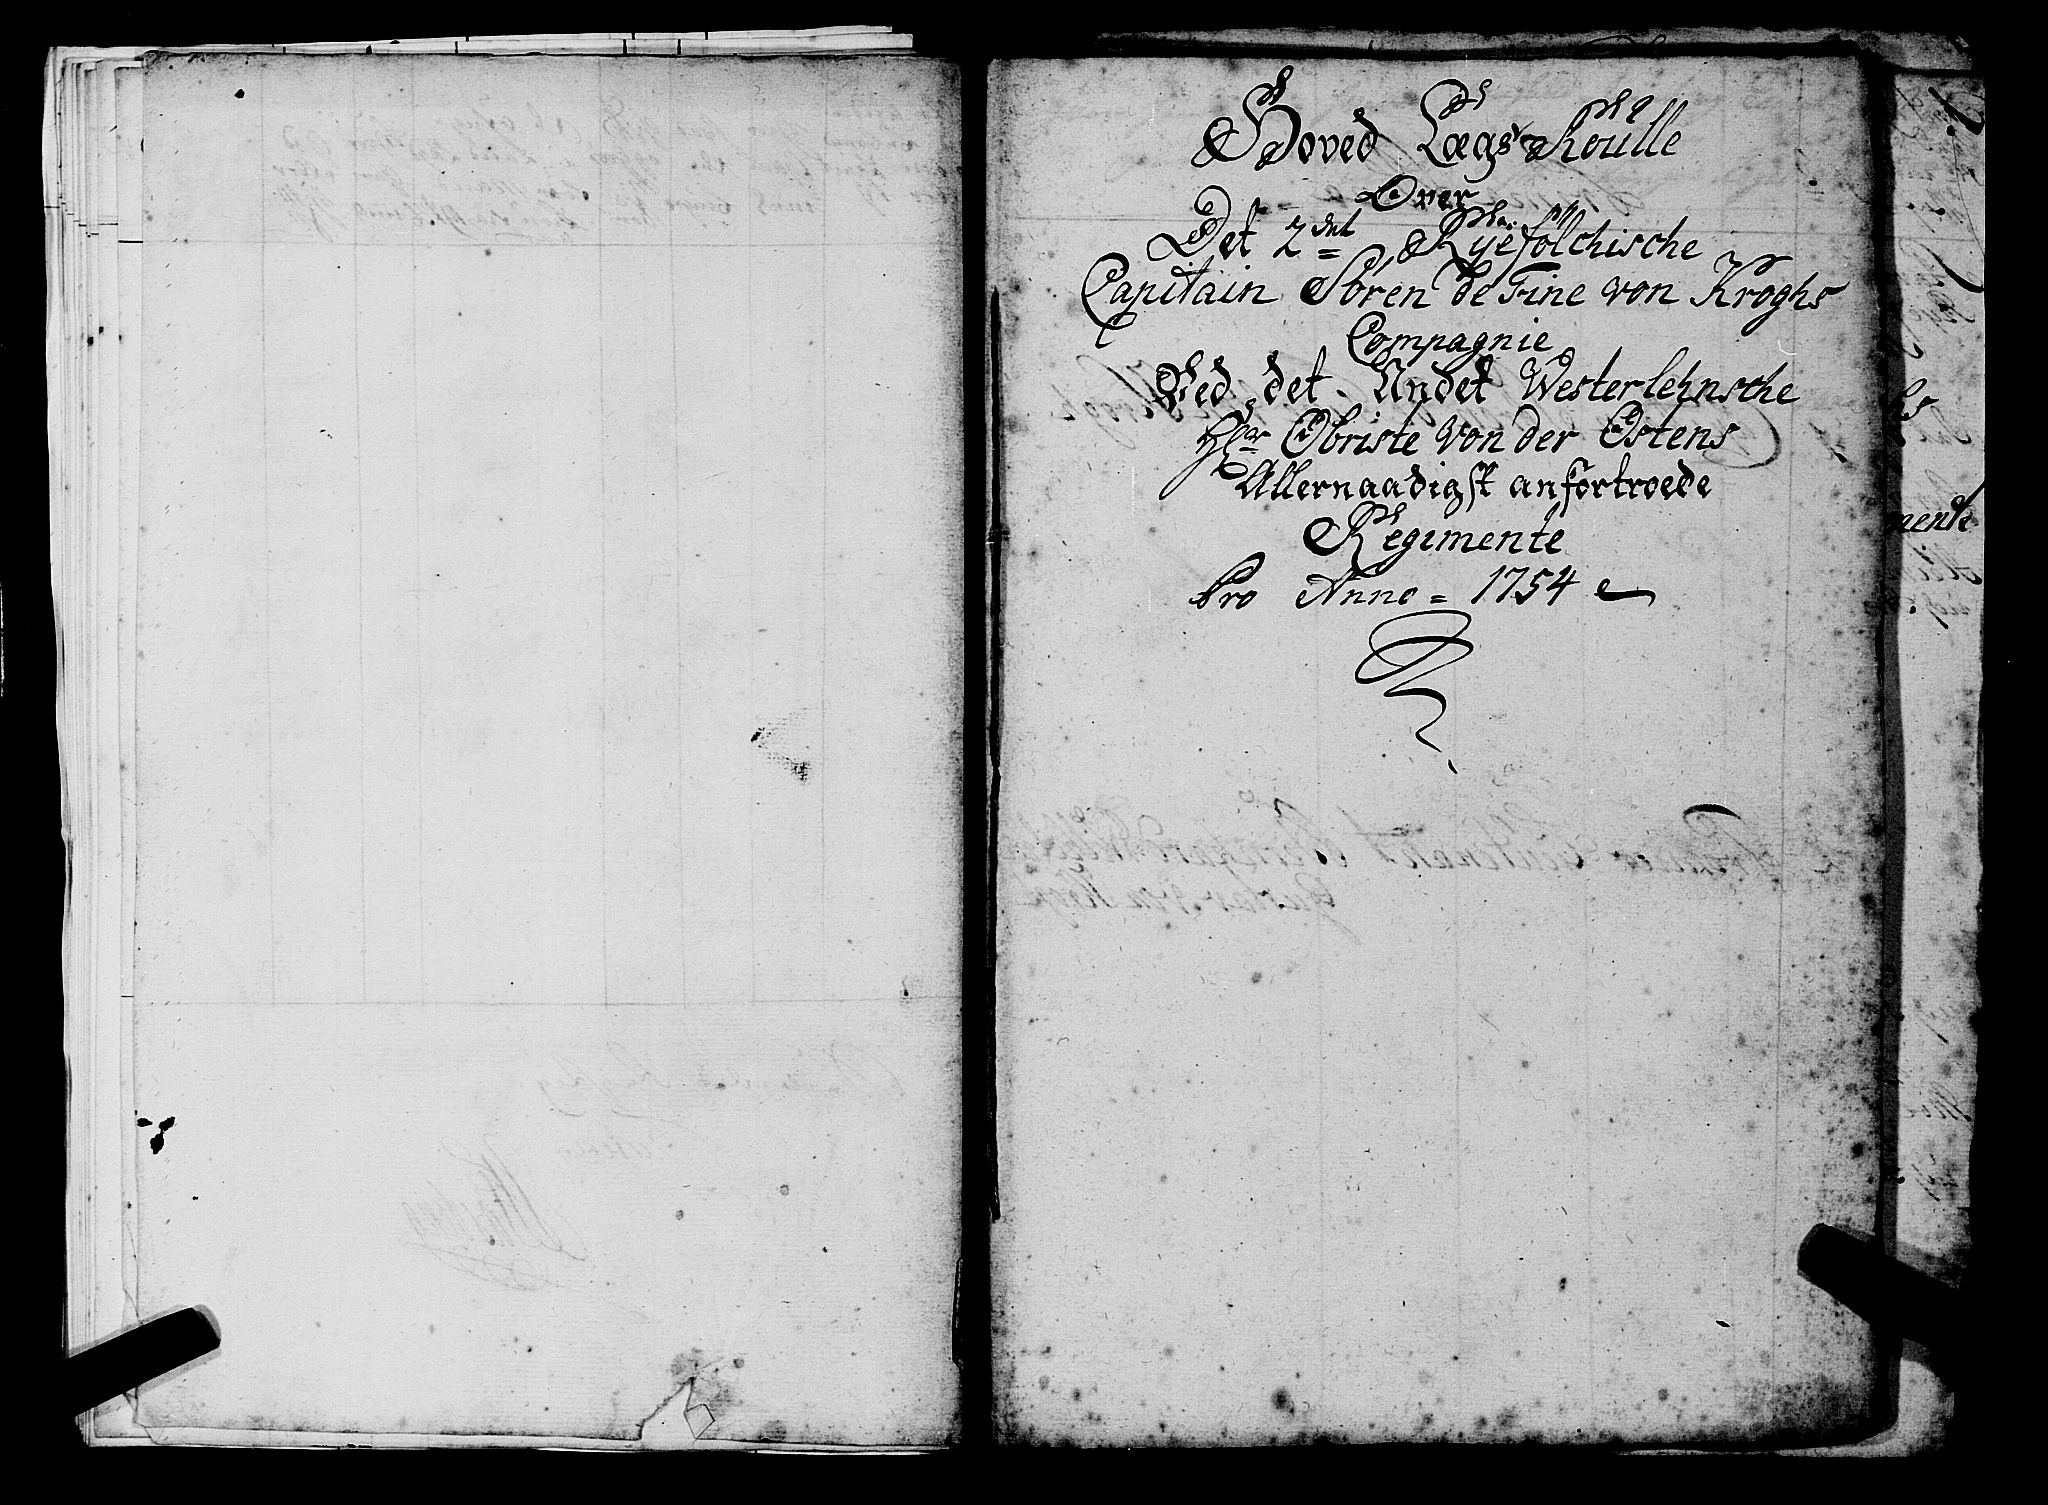 Hoved Lægs Roulle
Over
Det 2det Ryefölchische
Capitain Sören de Fine von Kroghs
Compagnie
Ved det Andet Westerlehnsche
Hr Obriste von der Ostens
Allernaadigst anfortroede
Regimente
Pro Anno = 1754